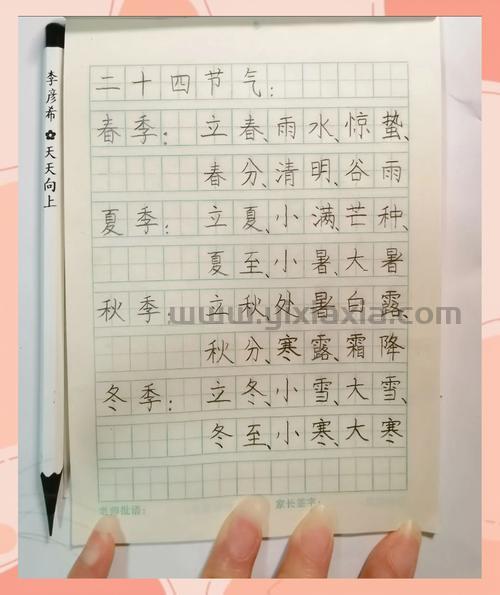 二十四节气:
春季:立春、雨水、惊蛰、
春分、清明、谷雨
夏季:立夏、小满、芒种、
夏至、小暑、大暑
秋季:立秋、处暑、白露、
秋分、寒露、霜降
冬季:立冬、小雪、大雪、
冬至、小寒、大寒
老师批语: 家长签字:
李彦希 ✿ 天天向上
www.yixiaxia.com